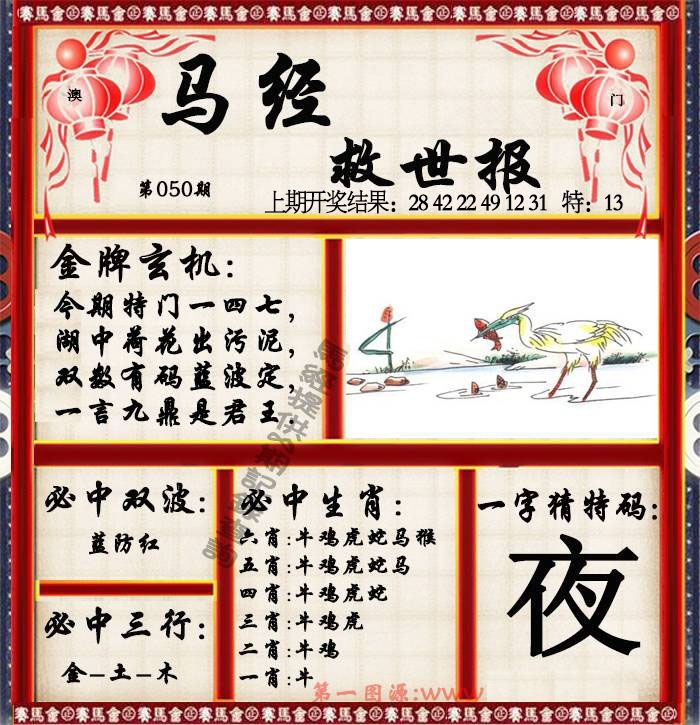 賽馬會正賽馬會正賽馬會正賽馬會正賽馬會
澳
门
马经
救世报
第050期
上期开奖结果：28 42 22 49 12 31 特：13
金牌玄机：
今期特门一四七，
湖中荷花出污泥，
双数有码蓝波定，
一言九鼎是君王.
必中双波：
蓝防红
必中三行：
金-土-木
必中生肖：
六肖:牛鸡虎蛇马猴
五肖:牛鸡虎蛇马
四肖:牛鸡虎蛇
三肖:牛鸡虎
二肖:牛鸡
一肖:牛
一字猜特码:
夜
第一图源:www